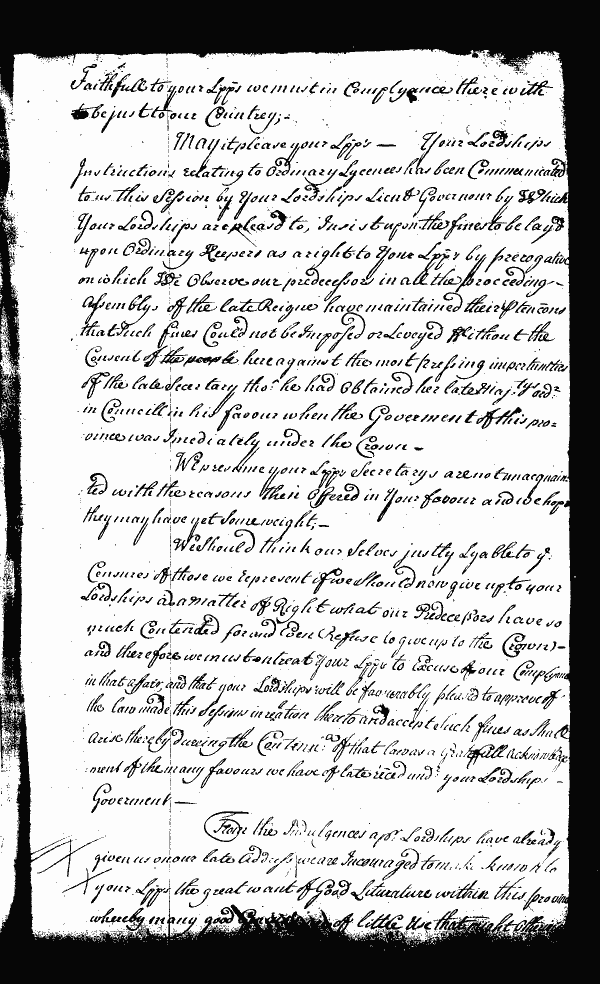 Faithfull to your Lpps we must in Complyance there with
to be just to our Countrey;-
May it please your Lpps — Your Lordships
Instructions relating to Ordinary Lycences has been Communicated
to us this Session by Your Lordships Lieut Governour by Which
Your Lordships are pleasd to, Insist upon the fines to be lay'd
upon Ordinary Keepers as a right to Your Lpps by prerogative
on which We Observe our predecessors in all the proceeding-
Assemblys of the late Reigne have maintained their
that Such fines Could not be Imposed or Leveyed Without the
Consent of the people here against the most pressing importunities
of the late Secretary tho: he had Obtained her late Maj:tys ord:r
in Councill in his favour when the Goverment of this pro=
vince was Imediately under the Crown -
We presume your Lpps Secretarys are not unacquain
ted with the reasons then Offered in Your favour and we hope
they may have yet Some weight;-
We Should think our Selves justly Lyable to ye:
Censures of those we represent if we Should now give up to your
Lordships as a matter of Right what our Predecessors have so
much Contended for and Even Refuse to give up to the Crown)-
and therefore we must entreat Your Lpps to Excuse of our Complyance
in that affair, and that your Lordships will be favourably pleased to approve of
the law made this Session in relation thereto and accept Such fines as Shall
arise thereby dureing the Continu:ce of that law as a gratefull acknowledge
ment of the many favours we have of late rec̄ed und:r your Lordships -
Goverment —
From the Indulgences Lordships have already
given us on our late Address we are Incouraged to make known to
your Lpps the great want of Good Literature within this Provin
whereby many good of little Use that might